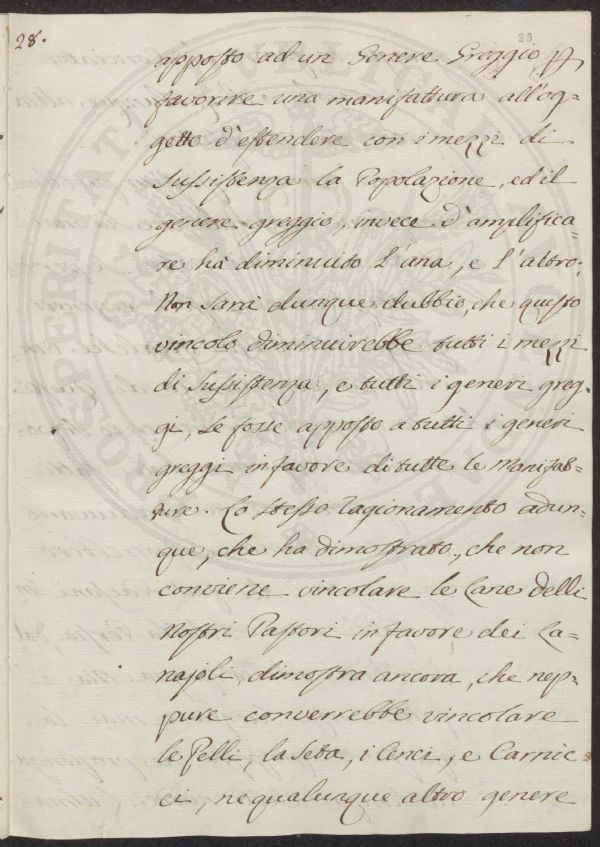 28.
29
apposto ad un Genere Greggio p
favorire una manifattura all'og-
getto d'estendere con i mezzi di
sussistenza la Popolazione, ed il
genere greggio, invece d'amplifica-
re hà diminuito l'una, e l'altro;
Non sarà dunque dubbio, che questo
vincolo diminuirebbe tutti i mezzi
di sussistenza, e tutti i generi greg-
gi, se fosse apposto a tutti i generi
greggi in favore di tutte le manifat-
ture. Lo stesso ragionamento adun-
que, che ha dimostrato, che non
conviene vincolare le Lane delli
Nostri Pastori in favore dei La-
najoli, dimostra ancora, che nep-
pure converrebbe vincolare
le Pelli, la Seta, i Cenci, e Carnic-
ci, ne qualunque altro genere